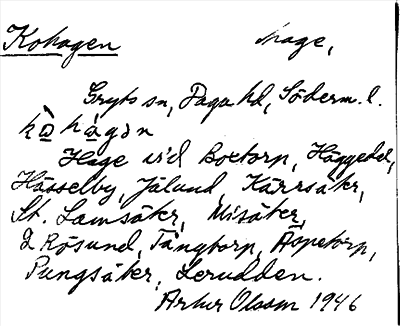 Kohagen hage,
Gryts sn, Daga hd, Söderm. l.
kò hàgən
Hage vid Boetorp, Häggedal,
Hässelby, Jälund, Kärrsäter,
St. Lamsäter, Misäter,
L Rösund, Tängtorp, Äspetorp,
Pungsäter, Lerudden.
Artur Olsson 1946